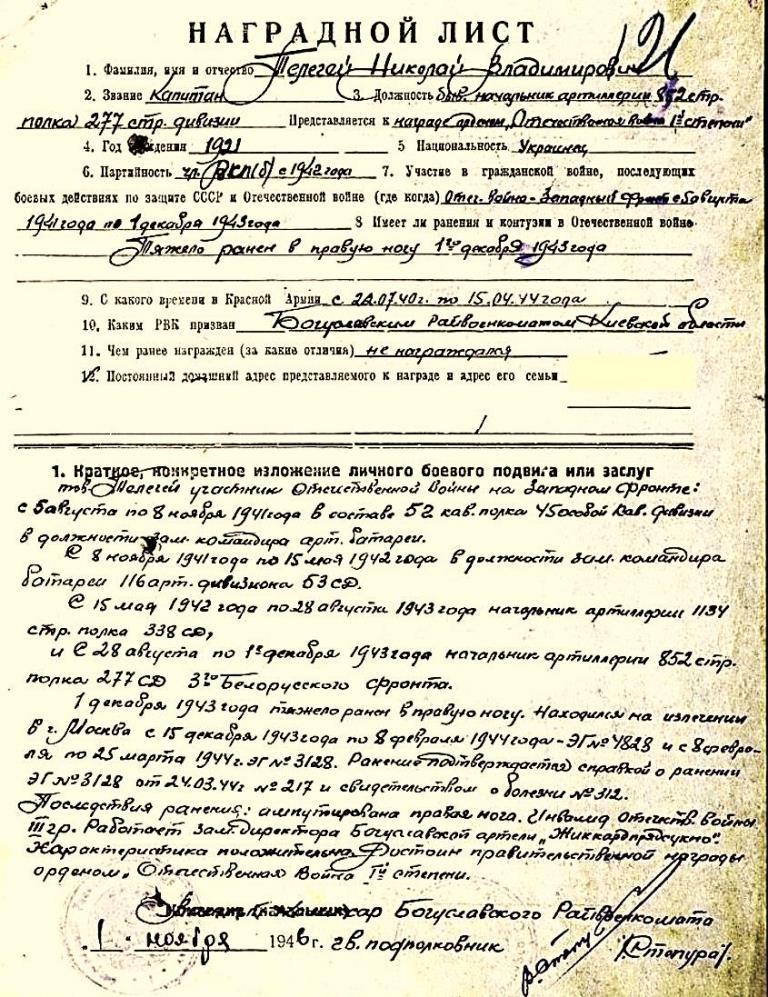 НАГРАДНОЙ ЛИСТ
1. Фамилия, имя и отчество Телегей Николай Владимирович
2. Звание капитан 3. Должность быв. начальник артиллерии 852 стр.
полка 277 стр. дивизии Представляется к награде орденом „Отечественная война I й степени"
4. Год рождения 1921 5 Национальность Украинец
6. Партийность чл. ВКП(б) с 1942 года 7. Участие в гражданской войне, последующих
боевых действиях по защите СССР и Отечественной войне (где когда) Отеч. война - Западный фронт с 5 августа
1941 года по 1 декабря 1943 года 8 Имеет ли ранения и контузии в Отечественной войне
Тяжело ранен в правую ногу 1го декабря 1943 года
9. С какого времени в Красной Армии с 22.07.40г. по 15.04.44 года
10. Каким РВК призван Богуславским Райвоенкоматом Киевской области
11. Чем ранее награжден (за какие отличия) не награждался
12. Постоянный домашний адрес представляемого к награде и адрес его семьи
1. Краткое, конкретное изложение личного боевого подвига или заслуг
тов. Телегей участник Отечественной войны на Западном фронте:
с 5 августа по 8 ноября 1941 года в составе 52 кав. полка 45 особой кав. дивизии
в должности зам. командира арт. батареи.
С 8 ноября 1941 года по 15 мая 1942 года в должности зам. командира
батареи 116 арт. дивизиона 53 СД.
С 15 мая 1942 года по 28 августа 1943 года начальник артиллерии 1134
стр. полка 338 СД,
и С 28 августа по 1е декабря 1943 года начальник артиллерии 852 стр.
полка 277 СД 3го Белорусского фронта.
1 декабря 1943 года тяжело ранен в правую ногу. Находился на излечении
в г. Москва с 15 декабря 1943 года по 8 февраля 1944 года - ЭГ № 4828 и с 8 февра-
ля по 25 марта 1944 г. ЭГ № 3128. Ранение подтверждается справкой о ранении
ЭГ № 3128 от 24.03.44г № 217 и свидетельством о болезни № 312.
Последствия ранения: ампутирована правая нога. Инвалид отечеств. войны
III гр. Работает зам. директора Богуславской артели
Характеристика положительна. Достоин правительственной награды
орденом „Отечественная Война I й степени.
Богуславского Райвоенкомата
1 ноября 1946 г. гв. подполковник